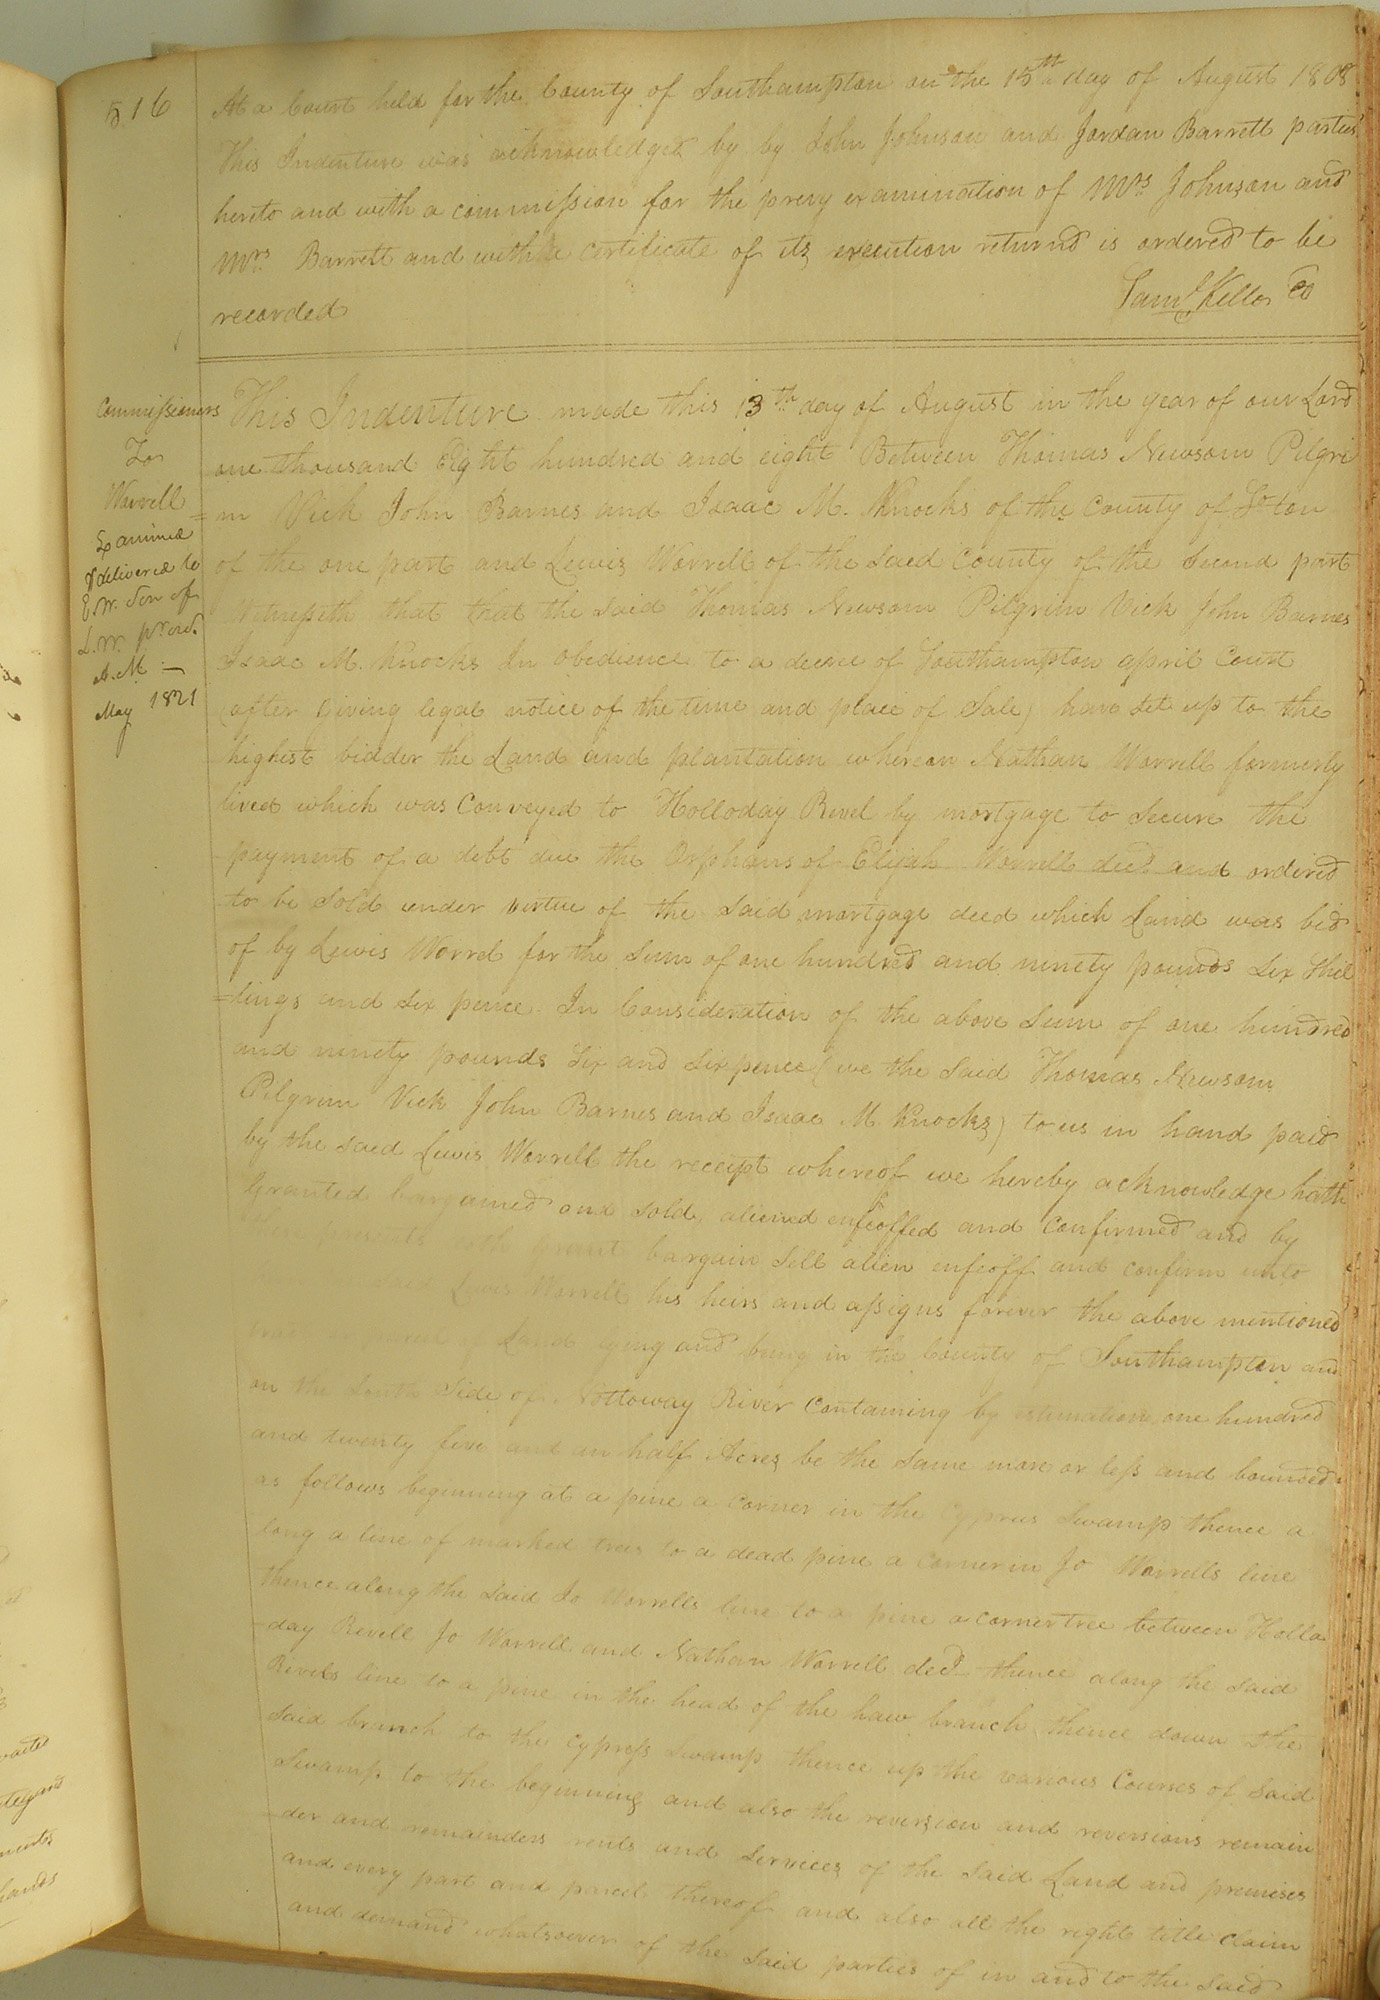 516
At a Court held for the County of Southampton on the 15th day of August 1808
This Indenture was acknowledged by by John Johnson and Jordan Barrett parties
hereto and with a commission for the prevy examination of Mrs Johnson and
Mrs Barrett and with a certificate of its execution returnd is ordered to be
recorded
Saml Kello CC
Commissioners
To
Worrell
Examined
& delivered to
E.W. Son of
L.W. pr ord.
A.M —
May 1821
This Indenture made this 13th day of August in the year of our Lord
one thousand Eight hundred and eight Between Thomas Newsom Pilgri
=m Vick John Barnes and Isaac M. Knocks of the County of So ton
of the one part and Lewis Worrell of the said County of the Second part
Witnesseth that that the said Thomas Newsom Pilgrim Vick John Barnes
Isaac M. Knocks In obedience to a decree of Southampton april Court
(after Giving legal notice of the time and place of Sale) have set up to the
highest bidder the Land and plantation whereon Nathan Worrell formerly
lived which was Conveyed to Holloday Revel by mortgage to Secure the
payment of a debt due the Orphans of Elijah Worrell decd and ordered
to be Sold under virtue of the said mortgage deed which Land was bid
of by Lewis Worrel for the Sum of one hundred and ninety pounds Six Shil
=lings and Six pence In Consideration of the above Sum of one hundred
and ninety pounds Six and Six pence (we the Said Thomas Newsom
Pilgrim Vick John Barnes and Isaac M Knocks) to us in hand paid
by the said Lewis Worrell the receipt whereof we hereby acknowledge hath
Granted bargained and Sold aliened enfeoffed and Confirmed and by
these presents doth grant bargain Sell alien enfeoff and confirm unto
said Lewis Worrell his heirs and assigns forever the above mentioned
Land lying and being in the County of Southampton and
on the South Side of Nottoway River Containing by estimation one hundred
and twenty five and an half Acres be the Same more or less and bounded
as follows beginning at a pine a Corner in the Cyprus Swamp thence a
long a line of marked trees to a dead pine a Corner in Jo Worrells line
thence along the Said Jo Worrells line to a pine a corner tree between Holla
day Revell Jo Worrell and Nathan Worrell decd thence along the said
Rivels line to a pine in the head of the haw branch thence down the
Said branch to the Cypress Swamp thence up the various Courses of Said
Swamp to the beginning and also the reversion and reversions remain
=der and remainders rents and Services of the Said Land and premises
and every part and parcel thereof and also all the right title claim
and demand whatsoever of the Said parties of in and to the Said